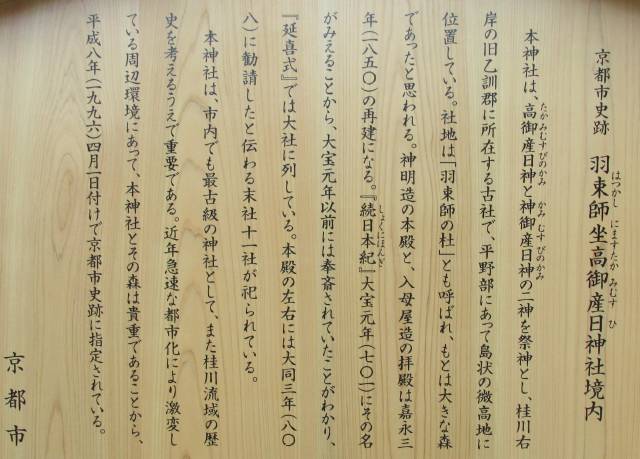 京都市史跡　羽束師坐高御産日神社境内
はつかし　にますたか　みむす　ひ
本神社は、高御産日神と神御産日神の二神を祭神とし、桂川右
たか　みむす　びのかみ　かみ　むす　びのかみ
岸の旧乙訓郡に所在する古社で、平野部にあって島状の微高地に
位置している。社地は「羽束師の杜」とも呼ばれ、もとは大きな森
であったと思われる。神明造の本殿と、入母屋造の拝殿は嘉永三
年（一八五〇）の再建になる。『続日本紀』大宝元年（七〇一）にその名
しょくにほんぎ
がみえることから、大宝元年以前には奉斎されていたことがわかり、
『延喜式』では大社に列している。本殿の左右には大同三年（八〇
八）に勧請したと伝わる末社十一社が祀られている。
本神社は、市内でも最古級の神社として、また桂川流域の歴
史を考えるうえで重要である。近年急速な都市化により激変し
ている周辺環境にあって、本神社とその森は貴重であることから、
平成八年（一九九六）四月一日付けで京都市史跡に指定されている。
京都市